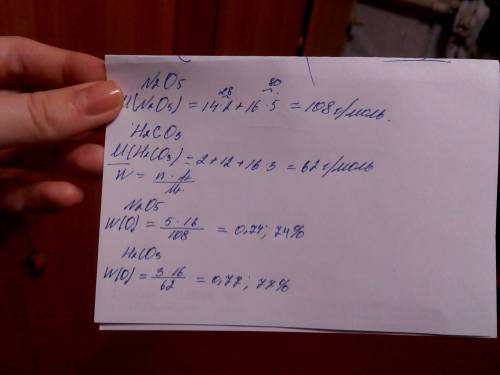 N2O5
M(N2O5) = 14·2 + 16·5 = 108 г/моль.
28 80
H2CO3
M(H2CO3) = 2 + 12 + 16·3 = 62 г/моль
W = n·Ar / Mr
N2O5
W(O) = 5·16 / 108 = 0,74; 74%
H2CO3
W(O) = 3·16 / 62 = 0,77; 77%